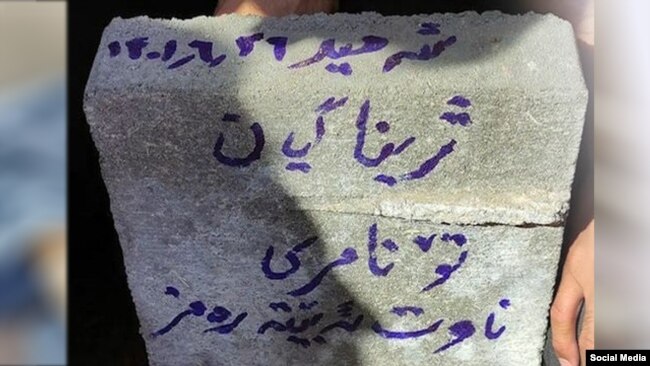 شەهید ۱۴۰۱٫۶٫۲۶
ژینا گیان
تۆ نامری
ناوت ئەبێتە ڕەمز
Social Media